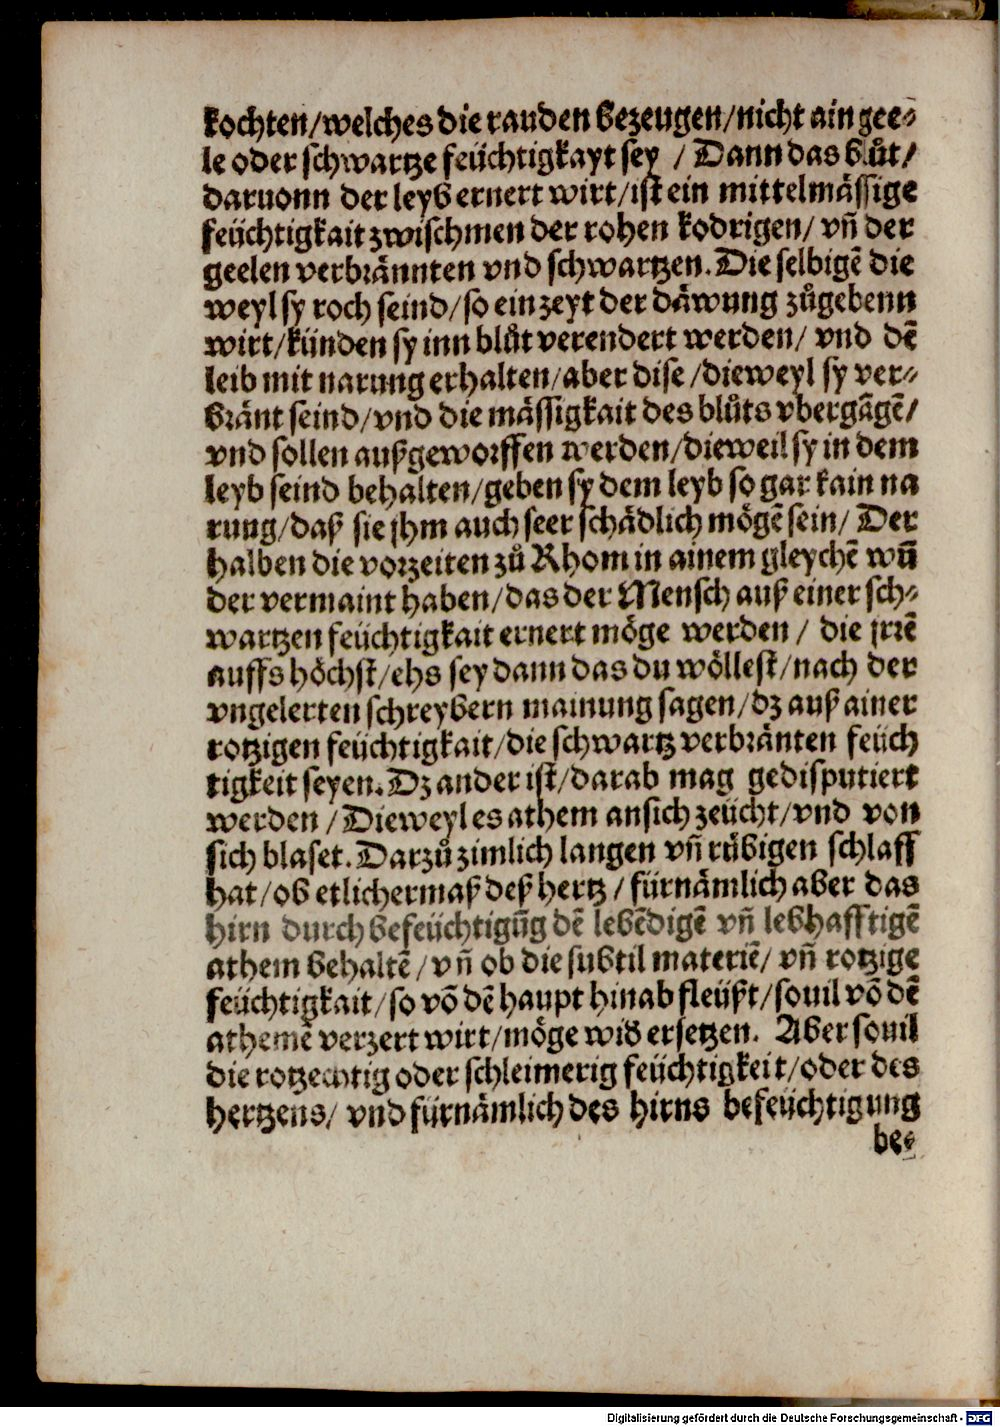 kochten/welches die rauden bezeugen/nicht ain gee⸗
le oder schwartze feüchtigkayt sey / Dann das blůt/
daruonn der leyb ernert wirt/ist ein mittelmässige
feüchtigkait zwischmen der rohen kodrigen/ vñ der
geelen verbrännten vnd schwartzen. Die selbigẽ die
weyl sy roch seind/so ein zeyt der däwung zůgebenn
wirt/künden sy inn blůt verendert werden/ vnd dẽ
leib mit narung erhalten/aber dise /dieweyl sy ver⸗
bränt seind/vnd die mässigkait des blůts vbergãgẽ/
vnd sollen außgeworffen werden/dieweil sy in dem
leyb seind behalten/geben sy dem leyb so gar kain na
rung/daß sie jhm auch seer schädlich mögẽ sein/ Der
halben die vorzeiten zů Rhom in ainem gleychẽ wũ
der vermaint haben/das der Mensch auß einer sch⸗
wartzen feüchtigkait ernert möge werden / die jrrẽ
auffs höchst/ehs sey dann das du wöllest/nach der
vngelerten schreybern mainung sagen/dz auß ainer
rotzigen feüchtigkait/die schwartz verbränten feüch
tigkeit seyen. Dz ander ist/darab mag gedisputiert
werden / Dieweyl es athem an sich zeücht/vnd von
sich blaset. Darzů zimlich langen vñ rübigen schlaff
hat/ob etlichermaß deß hertz / fürnämlich aber das
hirn durch befeüchtigũg dẽ lebẽdigẽ vñ lebhafftigẽ
athem behaltẽ/vñ ob die subtil materiẽ/ vñ rotzige
feüchtigkait/so võ dẽ haupt hinab fleüßt/souil võ dẽ
athemẽ verzert wirt/möge wid ersetzen. Aber souil
die rotzechtig oder schleimerig feüchtigkeit/oder des
hertzens/ vnd fürnämlich des hirns befeüchtigung
be⸗
Digitalisierung gefördert durch die Deutsche Forschungsgemeinschaft - DFG